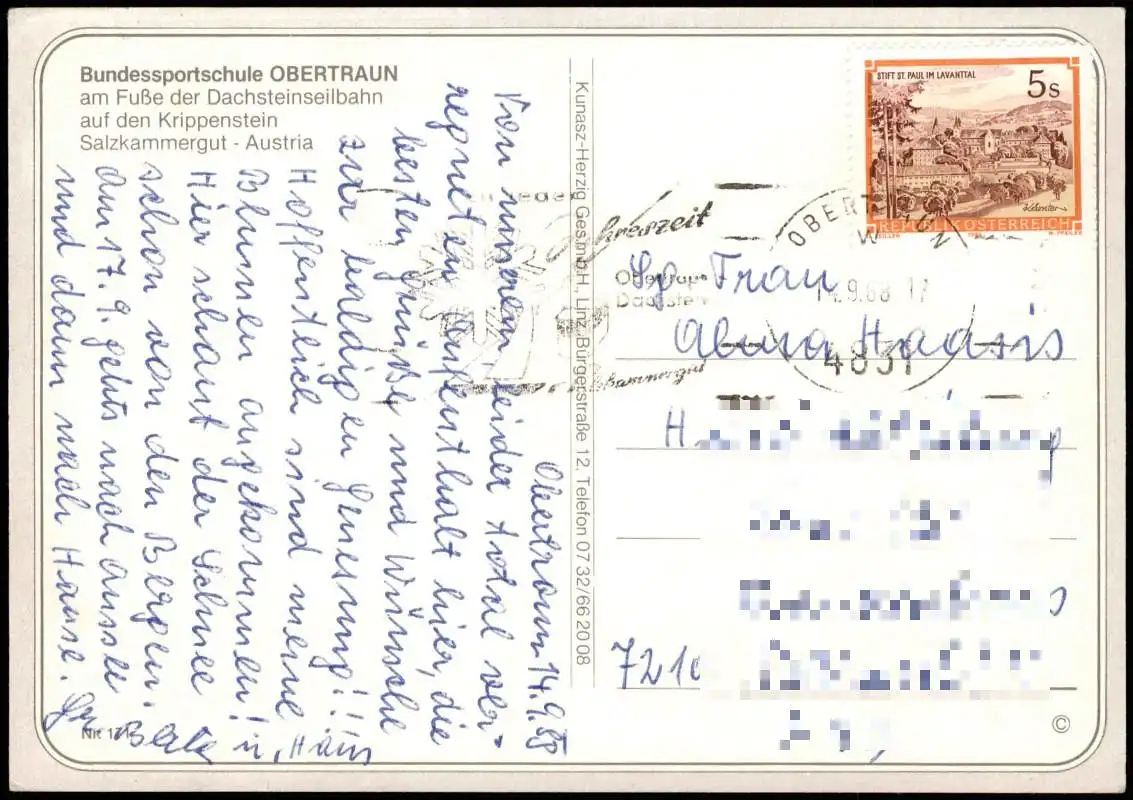 Bundessportschule OBERTRAUN
am Fuße der Dachsteinseilbahn
auf den Krippenstein
Salzkammergut - Austria
Obertraun 14.9.88
Von unserem leider total ver-
regneten Aufenthalt hier, die
besten Grüße und Wünsche
zur baldigen Genesung!!
Hoffentlich sind meine
Blumen angekommen!
Hier schaut der Schnee
schon von den Bergen.
Am 17. 9. gehts nach Aussee
und dann nach Hause.
Beate u. Hans
Nr. 17
Kunasz-Herzig Ges.m.b.H., Linz, Bürgerstraße 12, Telefon 07 32/66 20 08
STIFT ST. PAUL IM LAVANTTAL
5s
REPUBLIK ÖSTERREICH
zu jeder
Jahreszeit
Obertraun
Dachstein
Salzkammergut
OBERTRAUN
14.9.88 17
4831
Frau
Haasis
7210
©